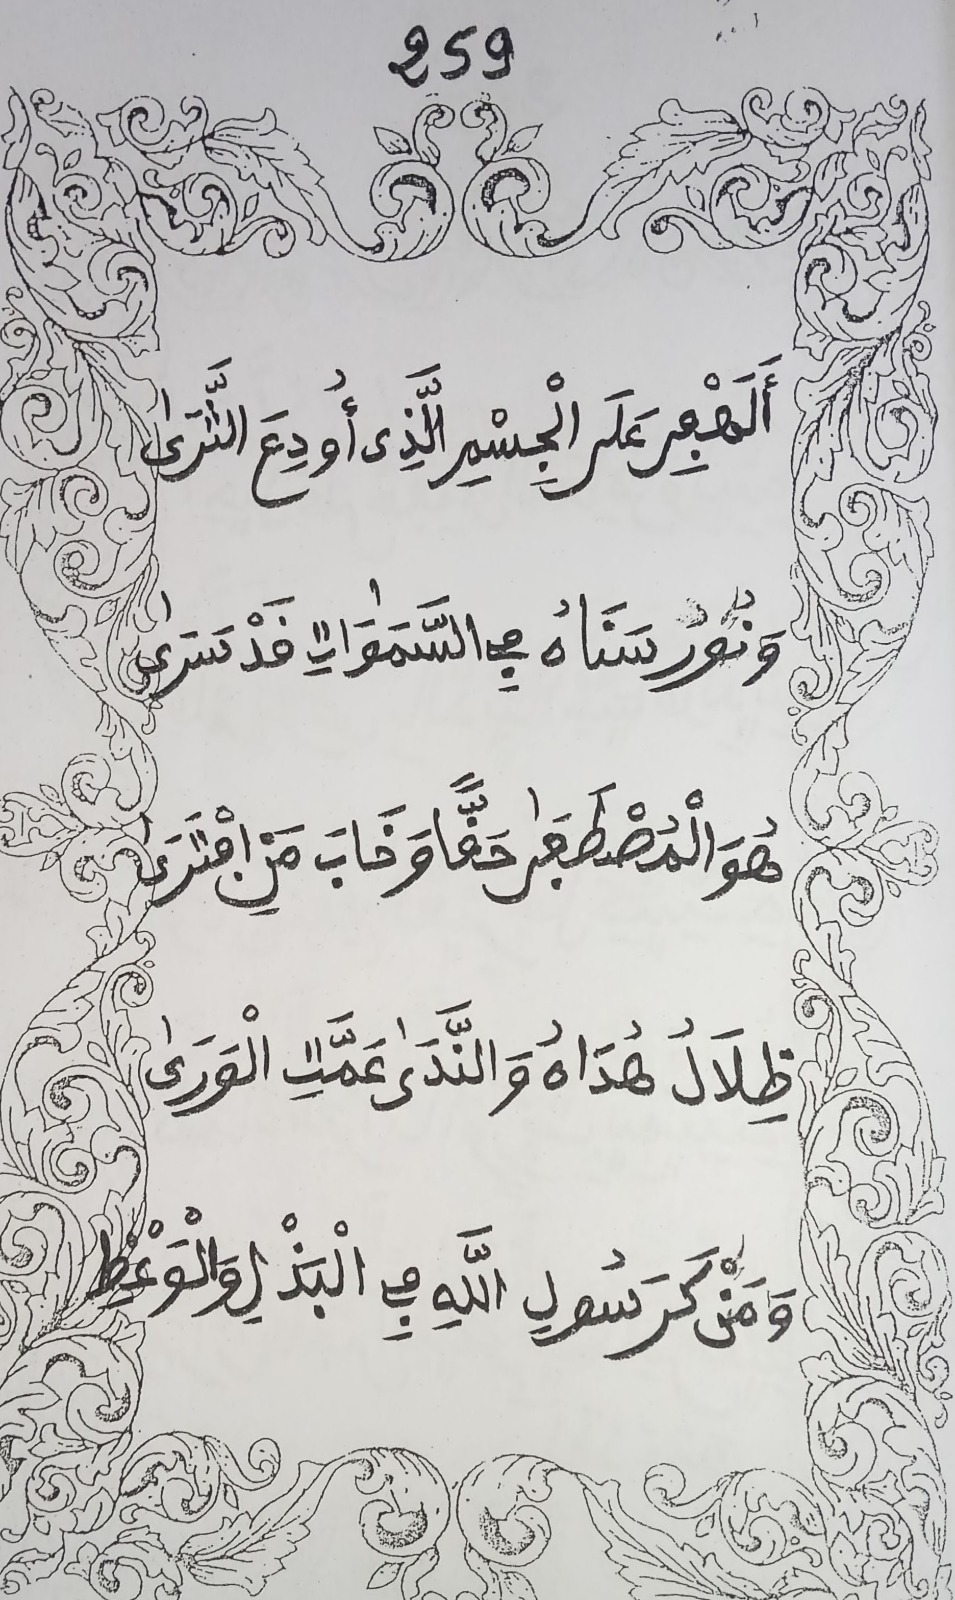 259
أَلَهْفِي عَلَى الْجِسْمِ الَّذِي أُودِعَ الثَّرَىٰ
وَنُورُ سَنَاهُ فِي السَّمَٰوَاتِ قَدْ سَرَىٰ
هُوَ الْمُصْطَفَىٰ حَقًّا وَخَابَ مَنِ افْتَرَىٰ
ظِلَالُ هُدَاهُ وَالنَّدَىٰ عَمَّتِ الْوَرَىٰ
وَمَنْ كَرَسُولِ اللَّهِ فِي الْبَذْلِ وَالْوَعْظِ